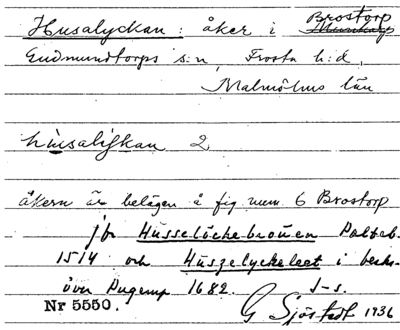 Husalyckan: åker i Brostorp
Gudmundtorps s:n, Frosta h:d,
Malmöhus län
husalışkan 2
åkern är belägen å fig num 6 Brostorp
jfr Husselöckebrouen Palteb.
1514 och Huszelyckeleet i beskr.
över Pugerup 1682. S-s.
Nr 5550. G Sjöstedt 1936